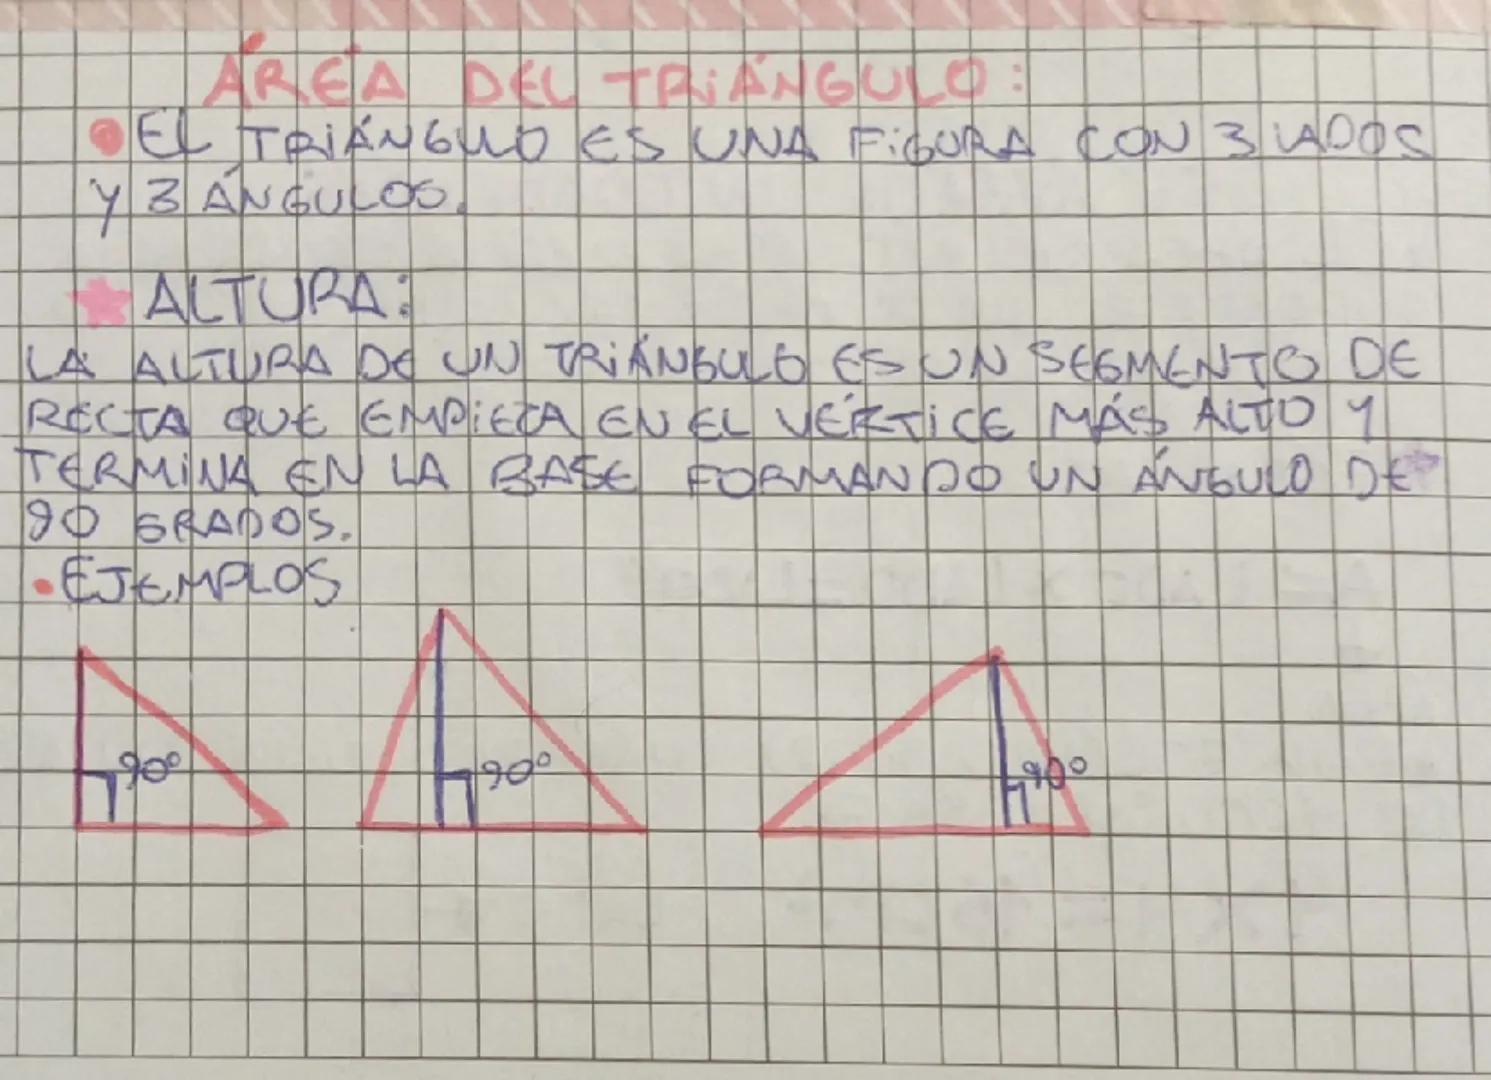 ÁREA DEL TRIÁNGULO:
• EL TRIÁNGULO ES UNA FIGURA CON 3 LADOS
Y 3 ÁNGULOS.
ALTURA:
LA ALTURA DE UN TRIÁNGULO ES UN SEGMENTO DE
RECTA QUE EMPIEZA EN EL VÉRTICE MÁS ALTO Y
TERMINA EN LA BASE FORMANDO UN ÁNGULO DE
90 GRADOS.
• EJEMPLOS
90° 90° 90°